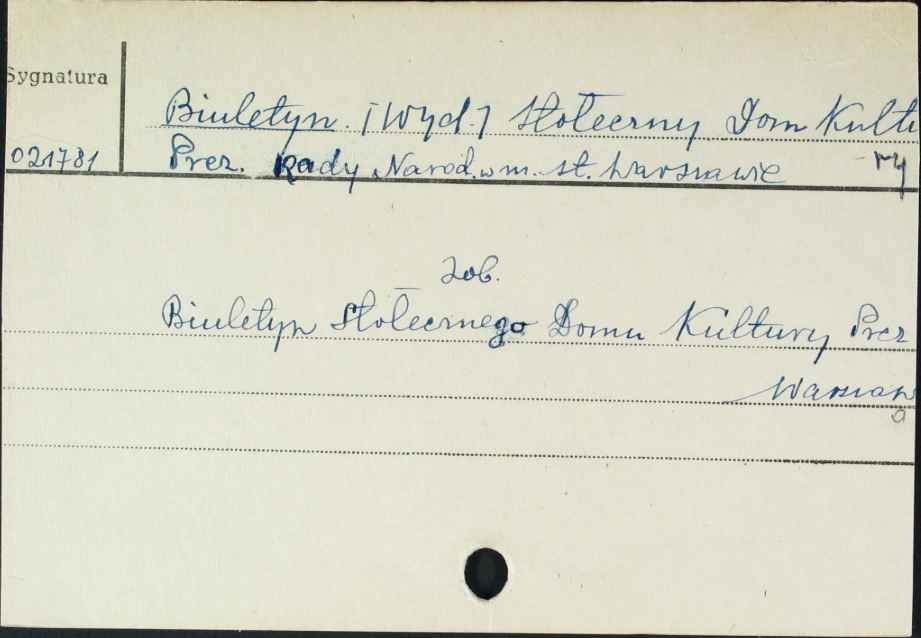 Sygnatura
Biuletyn. [Wyd.] Stołeczny Dom Kultu
021781 Prez. Rady Narod. w m. st. Warszawie -ry
Zob.
Biuletyn Stołecznego Domu Kultury Prez
Warszaw
a